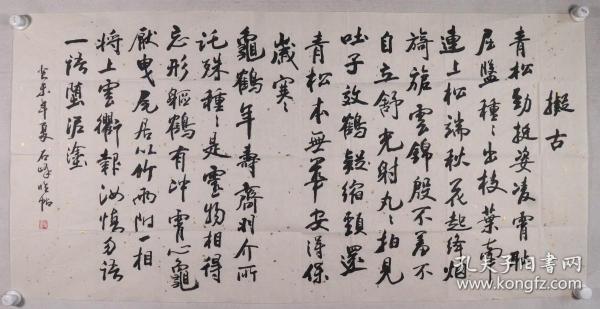 擬古
青松勁挺姿凌霄恥
屈盤種〻出枝葉牽
連上松端秋花起絳烟
旖旎雲錦殷不羞不
自立舒光射丸〻柏見
吐子效鶴疑縮頸還
青松本無華安得保
歲寒〻
龜鶴年壽齊羽介所
託殊種〻是靈物相得
忘形軀鶴有沖霄心龜
厭曳尾居以竹兩附一相
将上雲衢報汝慎勿語
一語墮泥塗
癸未年夏石峰
孔夫子旧书网
www.kongfz.com